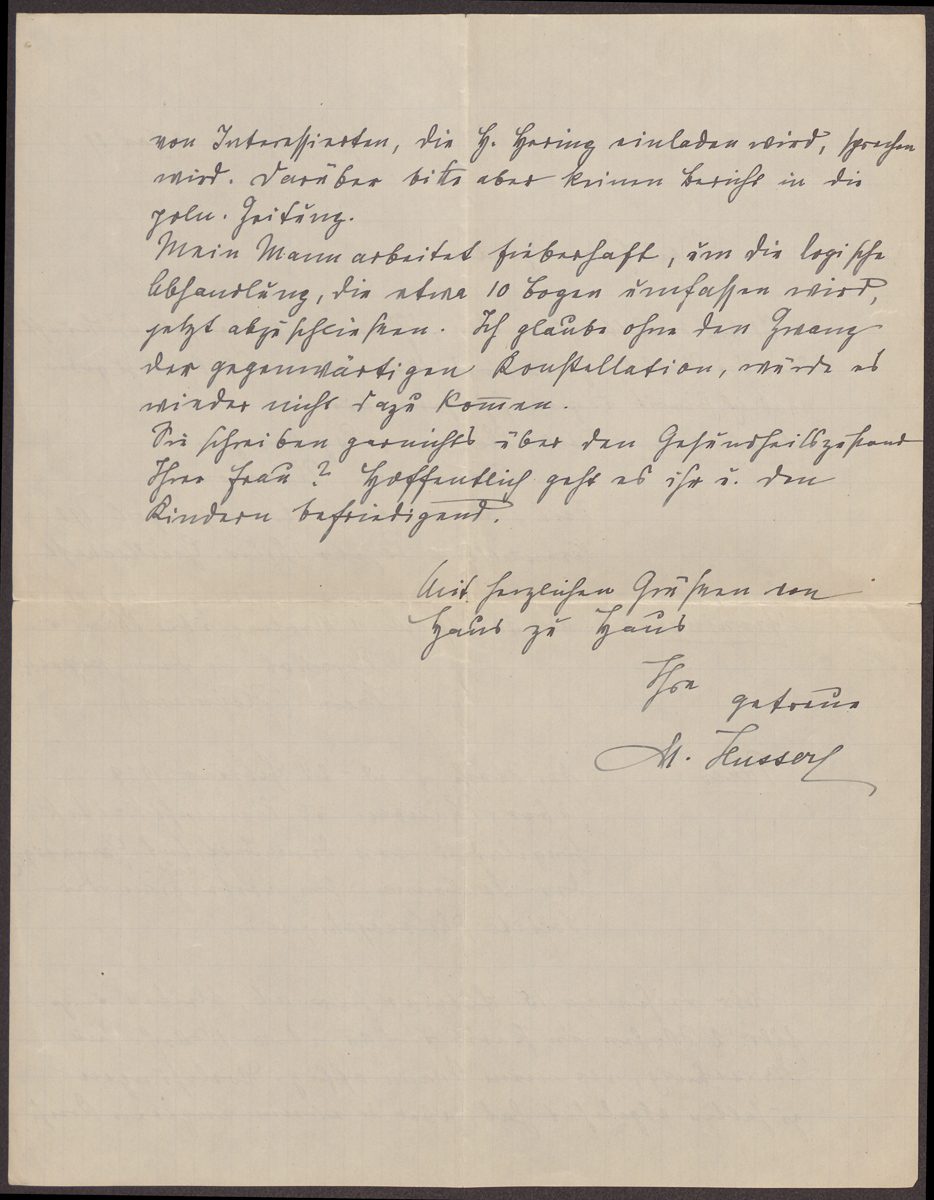 von Interessierten, die H. Hering einladen wird, sprechen
wird. Darüber bitte aber keinen Bericht in die
poln. Zeitung.
Mein Mann arbeitet fieberhaft, um die logische
Abhandlung, die etwa 10 Bogen umfassen wird,
jetzt abzuschließen. Ich glaube ohne den Zwang
der gegenwärtigen Konstellation, würde es
wieder nicht dazu kom̅en.
Sie schreiben garnichts über den Gesundheitszustand
Ihrer Frau? Hoffentlich geht es ihr u. den
Kindern befriedigend.
Mit herzlichen Grüßen von
Haus zu Haus
Ihre
getreue
M. Husserl